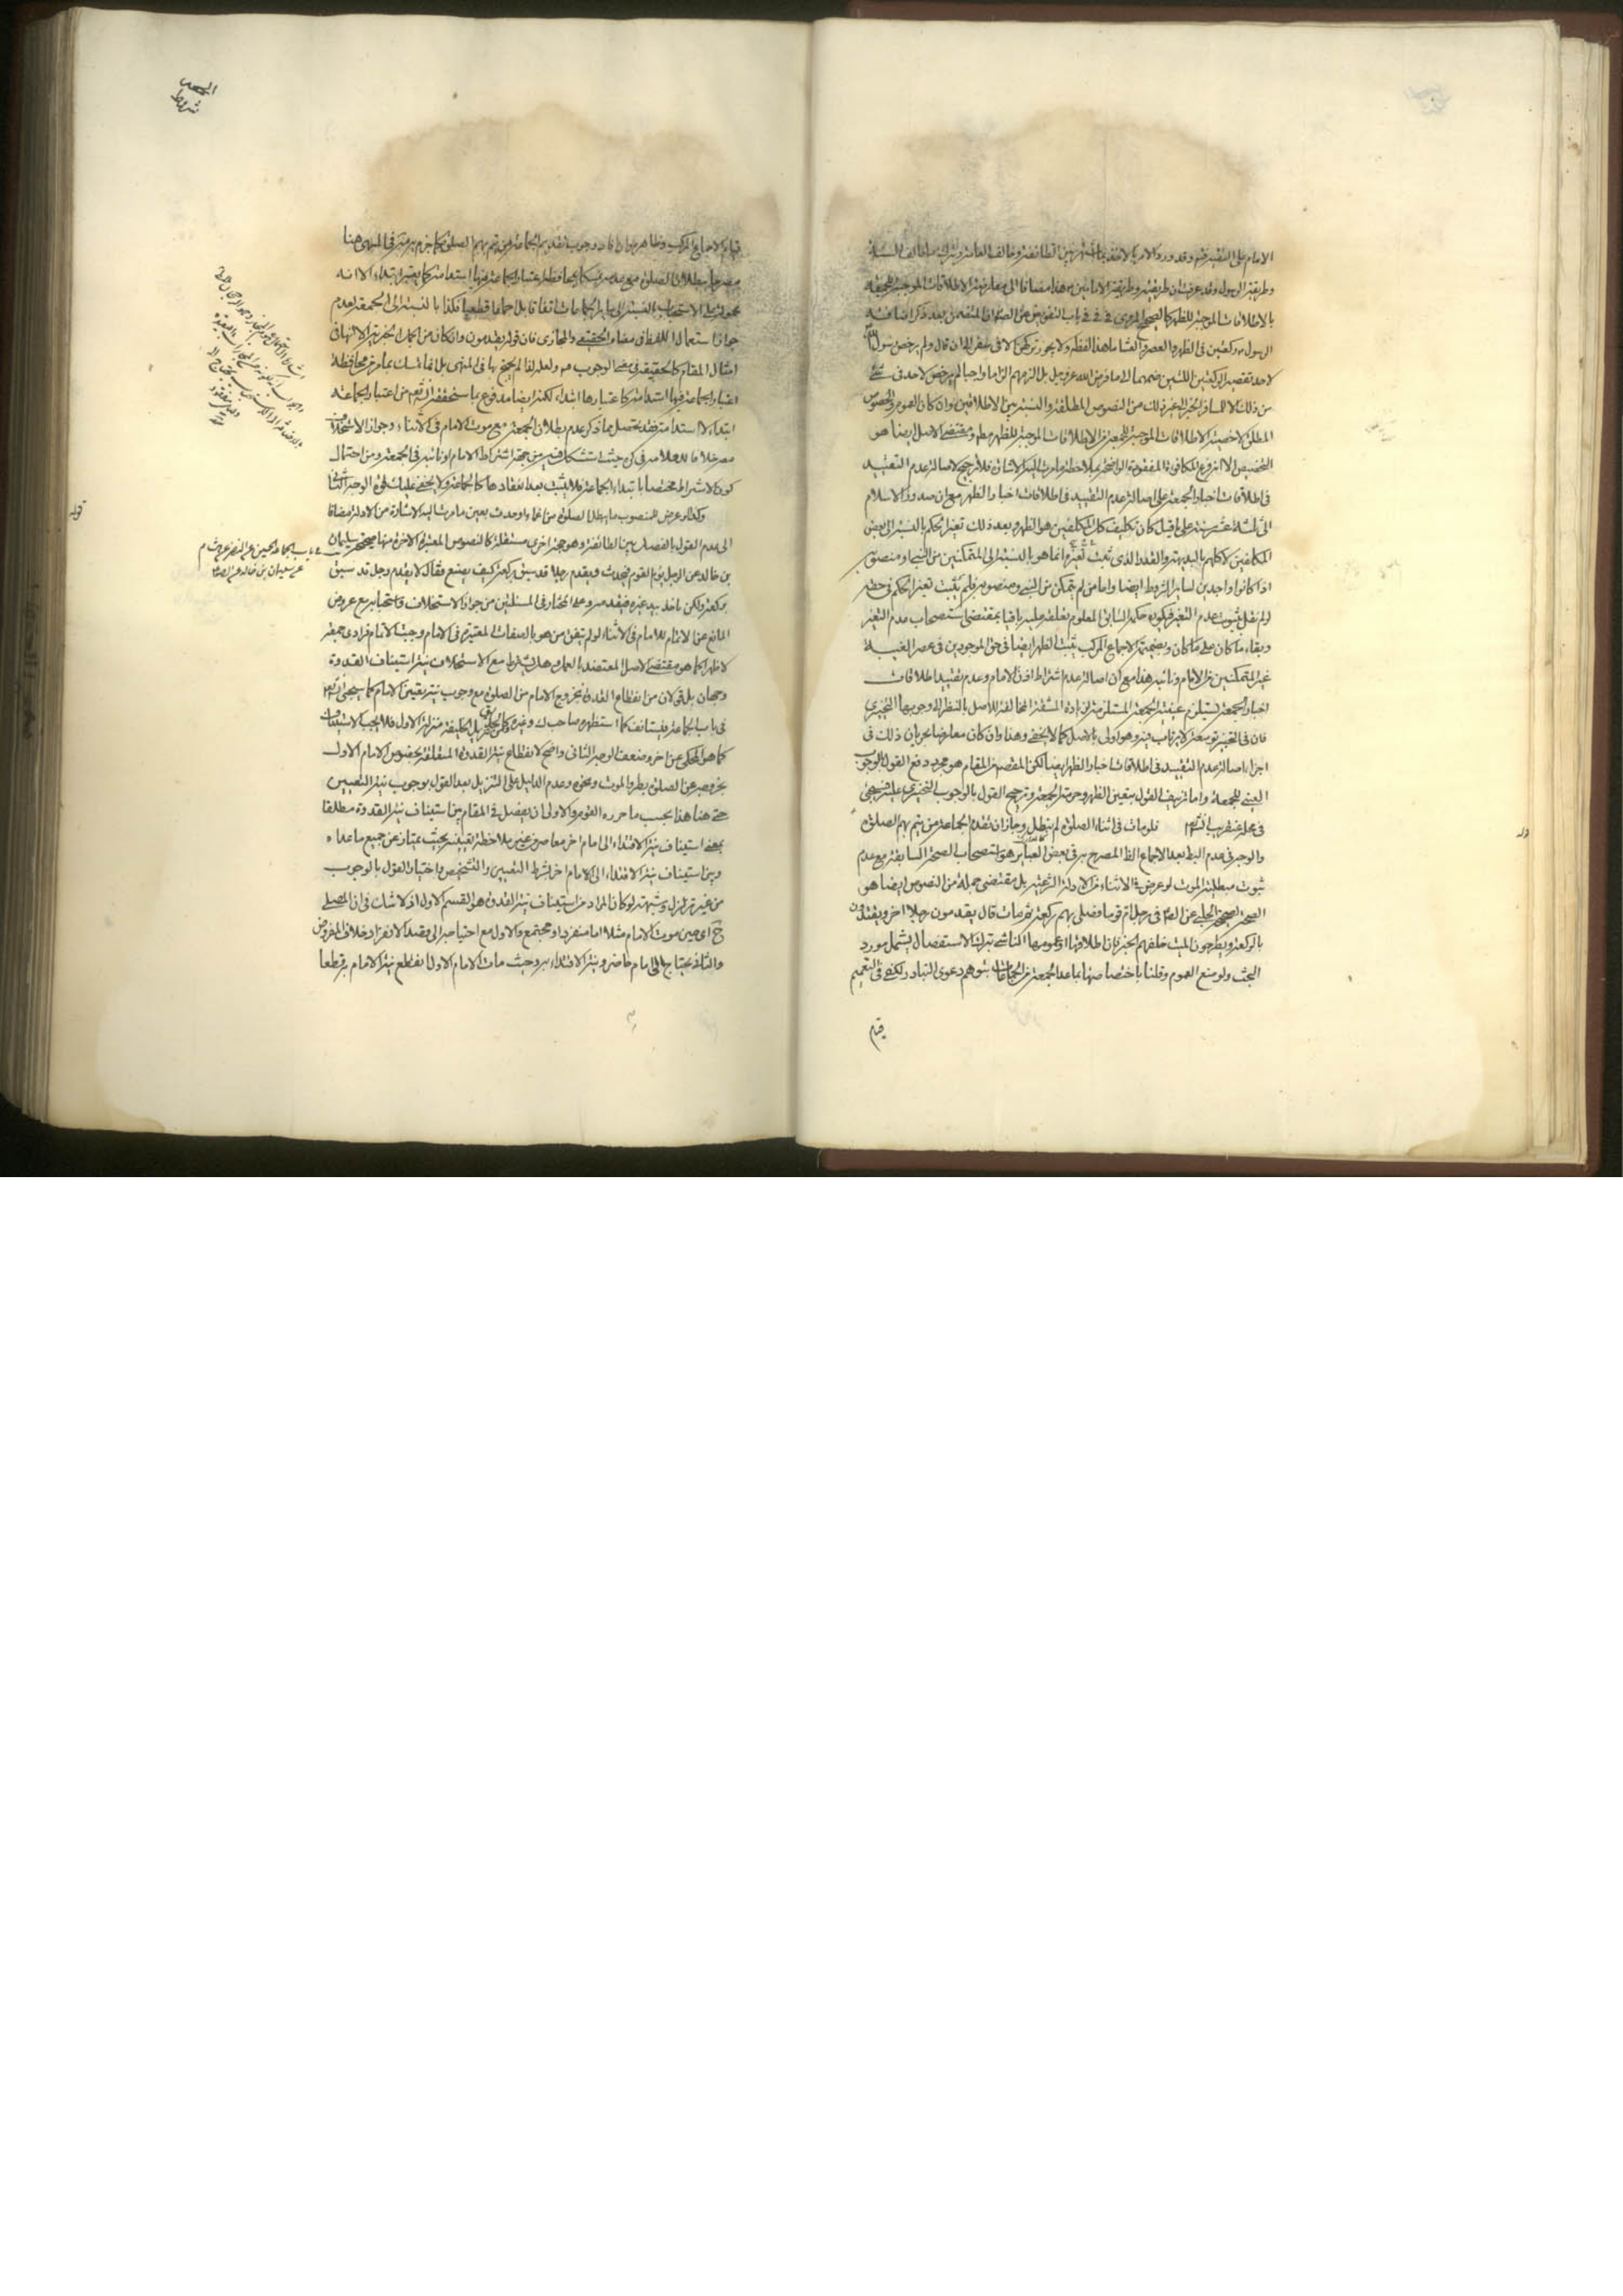 الامام على التقية وقد ورد الامر بالاخذ بما اشتهر بين الطائفة وخالف العامة وترك ما خالف السنة
وطريقة الرسول وقد عرفت ان طريقته وطريقة الامامين هذا مضافا الى معارضة الاطلاقات الموجبة للجمعة
بالاطلاقات الموجبة للظهر كالصحيح المروى في باب التفويض عن الصادق المتضمن بعد ذكر اضافة
الرسول ركعتين في الظهر والعصر والعشاء ما هذا لفظه ولا يجوز تركهن الا في سفر الى ان قال ولم يرخص رسول الله
لاحد تقصير الركعتين اللتين ضمهما الى ما فرض الله عز وجل بل الزمهم الزاما واجبا لم يرخص لاحد في شئ
من ذلك الا للمسافر الخبر الى غير ذلك من النصوص المطلقة والنسبة بين الاطلاقين وان كان العموم والخصوص
المطلق لاخصية الاطلاقات الموجبة للجمعة من الاطلاقات الموجبة للظهر مطلقا ومقتضى الاصل ايضا هو
التخصيص الا انه فرع المكافئة المفقودة الواضحة بملاحظة ما مرت اليه الاشارة فلا ترجيح لاصالة عدم التقييد
في اطلاقات اخبار الجمعة على اصالة عدم التقييد في اطلاقات اخبار الظهر مع ان صدر الاسلام
المكلفين لا كلهم بالبديهة والقدر الذي ثبت تغيره انما هو بالنسبة الى المتمكنين من النبي او منصوبه
اذا كانوا واجدين لساير الشروط ايضا واما من لم يتمكن من النبي ومنصوبه فلم يثبت تغير الحكم في حقه
لو لم نقل بثبوت عدم التغير فيكون حكم السابق المعلوم تعلقه عليه باقيا بمقتضى استصحاب عدم التغير
وبقاء ما كان على ما كان وبضميمة الاجماع المركب يثبت الظهر ايضا في حق الموجودين في عصر الغيبة
غير المتمكنين من الامام ونائبه هذا مع ان اصالة عدم اشتراط اذن الامام وعدم تقييد اطلاقات
اخبار الجمعة يستلزم عينية الجمعة المستلزمة لزيادة المشقة المخالفة للاصل بالنظر الى وجوبها التخييرى
فان في التخيير توسعة لا يرتاب فيه وهو اولى بالاصل كما لا يخفى وهذا وان كان معارضا بجريان ذلك في
اجراء اصالة عدم التقييد في اطلاقات اخبار الظهر ايضا لكن المقصود في المقام هو مجرد دفع القول بالوجوب
العيني للجمعة واما تزييف القول بتعين الظهر وحرمة الجمعة وترجيح القول بالوجوب التخييرى عليه فسيجئ
في محله عنقريب انشاء الله فلو مات في اثناء الصلوة لم تبطل وجاز ان تقدم الجماعة من يتم بهم الصلوة
والوجه في عدم البطلان بعد الاجماع الظاهر المصرح به في بعض العباير هو استصحاب الصحة السابقة مع عدم
ثبوت مبطلية الموت لو عرض في الاثناء من الادلة الشرعية بل مقتضى جملة من النصوص ايضا هو
الصحة كصحيح الحلبي عن الصادق في رجل ام قوما فصلى بهم ركعة ثم مات قال يقدمون رجلا اخر ويعتدون
بالركعة ويطرحون الميت خلفهم الخبر فان اطلاقها او عمومها الناشئ من ترك الاستفصال يشمل مورد
البحث ولو منع العموم وقلنا باختصاصها بما عدا الجمعة من الجماعات بتوهم دعوى التبادر لكفى في التعميم
قيام
الجمعه
شروط
قيام الاجماع المركب وظاهر هو افاد وجوب تقديم الجماعة من يتم بهم الصلوة كما جزم به في المنتهى هنا
محمولة على الاستحباب بالنسبة الى ساير الجماعات اتفاقا بل اجماعا قطعيا فكذا بالنسبة الى الجمعة لعدم
جواز استعمال اللفظ في معناه الحقيقي والمجازى فان قوله يقدمون وان كان من الجمل الخبرية الا انها في
امثال المقام كالحقيقة في معنى الوجوب ولعله لذا لم يحتج بها في المنتهى بل انما تمسك بما مر من محافظة
اعتبار الجماعة فيها استدامة كاعتبارها ابتداء لكنه ايضا مدفوع بما ستحققه انشاء الله من اعتبار الجماعة
ابتداء لا استدامة فقد تحصل مما ذكر عدم بطلان الجمعة مع موت الامام في الاثناء وجواز الاستخلاف
خلافا للعلامة في كره حيث استشكل فيه من جهة اشتراط الامام او نائبه في الجمعة ومن احتمال
كون الاشتراط مختصا بابتداء الجماعة فلا يثبت بعد انعقادها كالجماعة ولا يخفى عليك قوة الوجه الثاني
وكذا لو عرض للمنصوب ما يبطل الصلوة من اغماء او حدث بعين ما مرت اليه الاشارة من الادلة مضافا
الى عدم القول بالفصل بين الطائفة وهو حجة اخرى مستقلة كالنصوص المعتبرة الاخرة منها صحيحة سليمان
بن خالد عن الرجل يؤم القوم فيحدث ويقدم رجلا قد سبق بركعة كيف يصنع فقال لا يقدم رجلا قد سبق
بركعة ولكن ياخذ بيد غيره فيقدمه وعلى المختار في المسئلتين من جواز الاستخلاف واستحبابه مع عروض
المانع عن الاتمام للامام في الاثناء لو لم يتفق من هو بالصفات المعتبرة في الامام وجب الاتمام فرادى جمعة
لا ظهرا كما هو مقتضى الاصل المعتضد بالعمل وهل يشترط مع الاستخلاف نية استيناف القدوة
وجهان بل قولان من انقطاع القدوة بخروج الامام من الصلوة مع وجوب نية تعيين الامام كما سيجئ انشاء الله
في باب الجماعة فيستانف كما استظهره صاحب ك وغيره ومن تنزيل الخليفة منزلة الاول فلا يجب الاستيناف
كما هو المحكى عن اخر وضعف الوجه الثاني واضح لانقطاع نية القدوة المتعلقة بخصوص الامام الاول
بخروجه عن الصلوة بطرو الموت ونحوه وعدم الدليل على التنزيل بعد القول بوجوب نية التعيين
حتى هنا هذا بحسب ما حرره القوم والاولى ان يفصل في المقام بين استيناف نية القدوة مطلقا
بمعنى استيناف نية الاقتداء الى امام اخر معاصر من غير ملاحظة تعيينه بحيث يمتاز عن جميع ما عداه
وبين استيناف نية الاقتداء الى الامام اخر بشرط التعيين والتشخيص واختيار القول بالوجوب
من غير تزلزل وشبهة لو كان المراد من استيناف نية القدوة هو القسم الاول اذ لا شك في ان المصلى
ح اى حين موت الامام مثلا اما منفرد او مجتمع والاول مع احتياجه الى قصد الانفراد خلاف المفروض
والثاني يحتاج الى امام حاضر ونية الاقتداء به وحيث مات الامام الاول انقطع نية الامام به قطعا